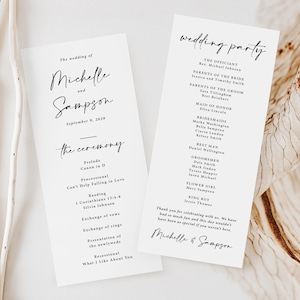 The wedding of
Michelle
and
Sampson
September 9, 2020
the ceremony
Prelude
Canon in D
Processional
Can't Help Falling in Love
Reading
1 Corinthians 13:4-8
Silvia Johnson
Exchange of vows
Exchange of rings
Presentation of
the newlyweds
Recessional
What I Like About You
wedding party
THE OFFICIANT
Rev. Michael Johnson
PARENTS OF THE BRIDE
Jessica and Timothy Smith
PARENTS OF THE GROOM
Sara Tillingham
Bert Brothers
MAID OF HONOR
Ellen Lincoln
BRIDESMAIDS
Marke Washington
Kelly Simpson
Laura London
Stacey Smith
BEST MAN
Daniel Wellington
GROOMSMEN
Jude Smith
Tyson Meyers
Jason Michael
FLOWER GIRL
Mary Simpson
RING BOY
Jessie Thomas
Thank you for celebrating with us. We have
had so much fun and this day wouldn't
have been as special if you weren't here.
Michelle & Sampson